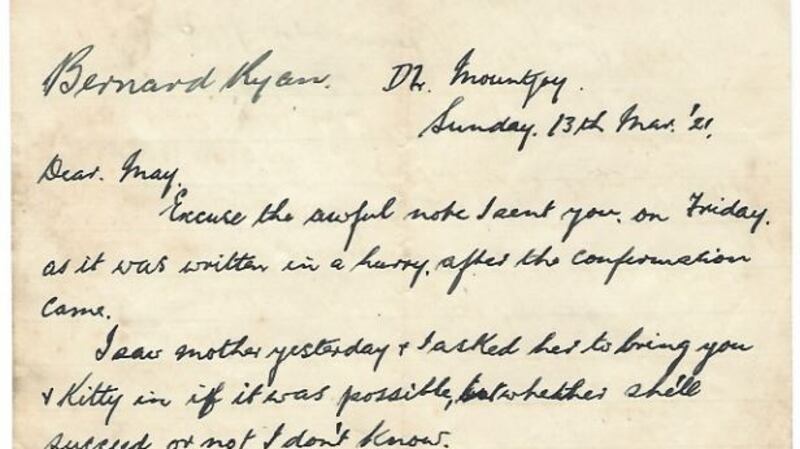 Bernard Ryan. D2. Mountjoy.
Sunday. 13th Mar. '21.
Dear. May.
Excuse the awful note I sent you, on Friday.
as it was written in a hurry, after the confirmation
came.
I saw mother yesterday + I asked her to bring you
+ Kitty in if it was possible, but whether she'll
succeed or not I don't know.